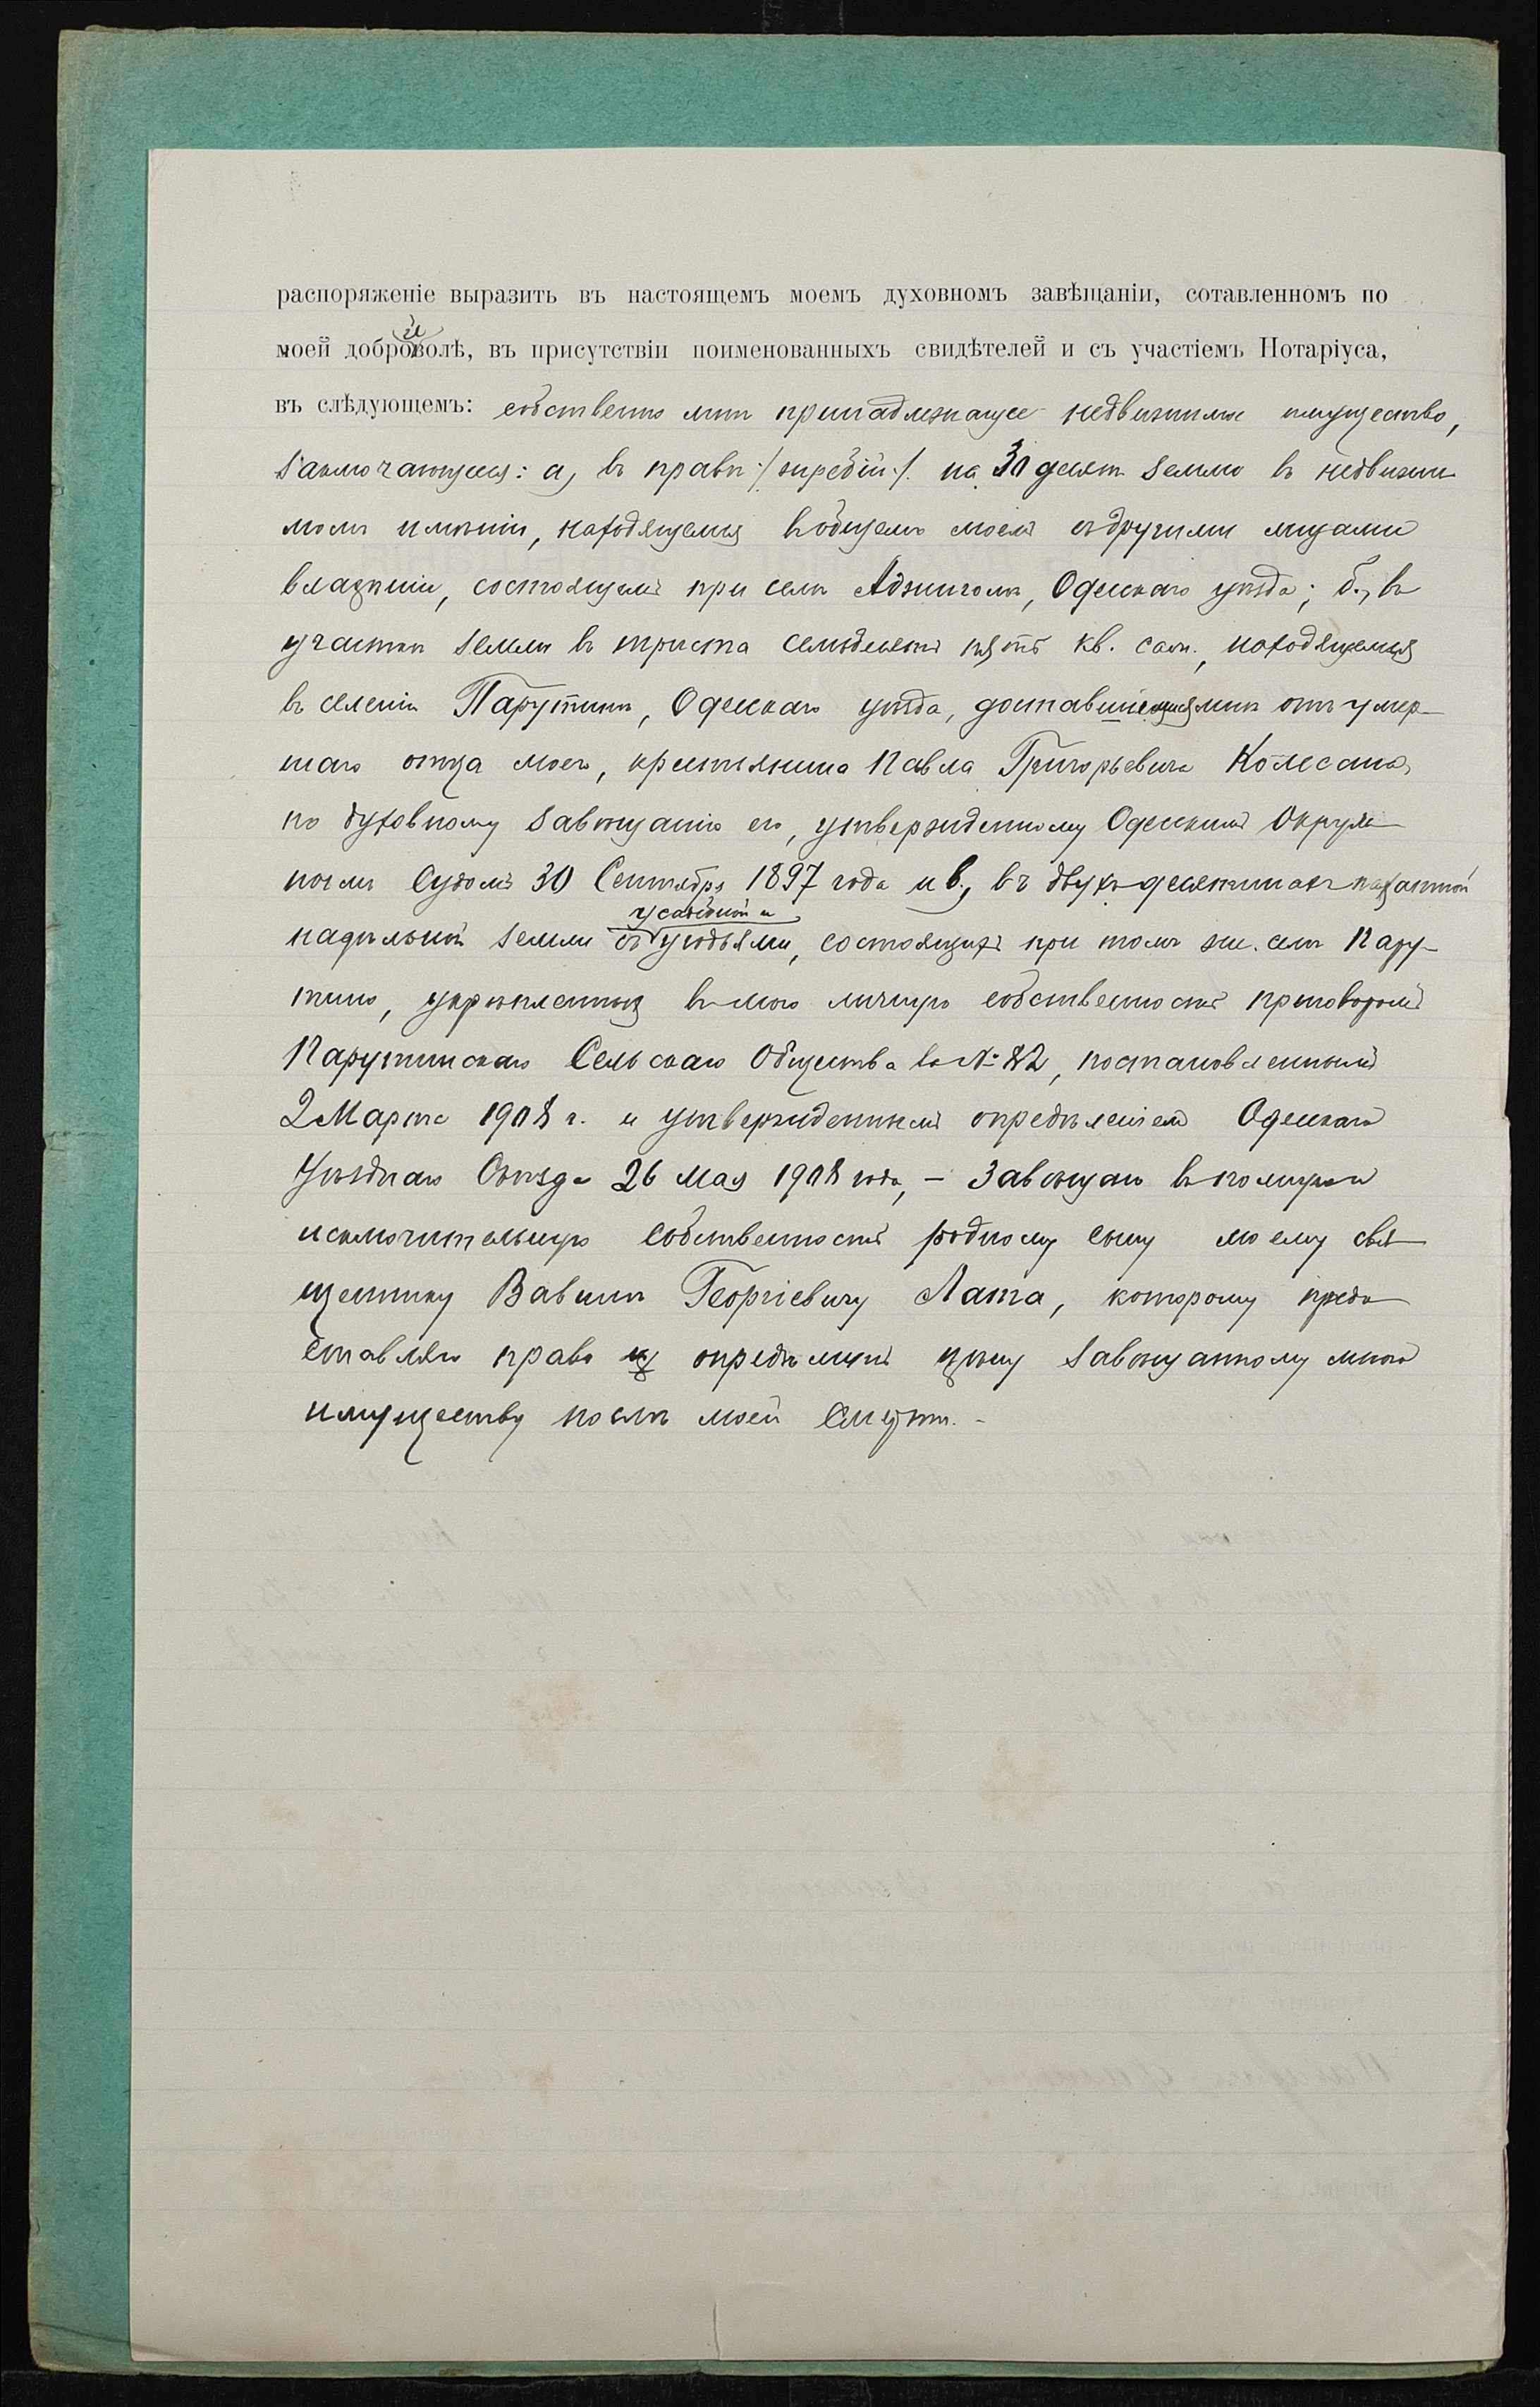 распоряженіе выразить въ настоящемъ моемъ духовномъ завѣщаніи, сотавленномъ по
моей доброй волѣ, въ присутствіи поименованныхъ свидѣтелей и съ участіемъ Нотаріуса,
въ слѣдующемъ: собственно мнѣ принадлежащее недвижимое имущество,
заключающееся: а, въ правѣ /: жребій :/ на 30 десят. землю въ недвижи-
момъ имѣніи, находящемся въ общемъ моемъ съ другими лицами
владѣніи, состоящемъ при селѣ Аджиголѣ, Одесскаго уѣзда; б., въ
участкѣ земли въ триста семьдесятъ пять кв. саж., находящемся
въ селеніи Парутинѣ, Одесскаго уѣзда, доставшіеся мнѣ отъ умер-
шаго отца моего, крестьянина Павла Григорьевича Колесника,
по духовному завѣщанію его, утвержденному Одесскимъ Окруж-
нымъ Судомъ 30 Сентября 1897 года и в., въ двухъ десятинахъ пахатной
усадебной и
надѣльной земли съ угодьями, состоящихъ при томъ же селѣ Пару-
тино, укрѣпленныхъ въ мою личную собственность приговоромъ
Парутинскаго Сельскаго Общества за № 82, постановленнымъ
2 Марта 1908 г. и утвержденнымъ опредѣленіемъ Одесскаго
Уѣзднаго Съѣзда 26 Мая 1908 года, – Завѣщаю въ полную и
исключительную собственность родному сыну моему свя-
щеннику Вавилѣ Георгіевичу Лата, которому предо-
ставляю право опредѣлить цѣну завѣщанному мною
имуществу послѣ моей смерти. -